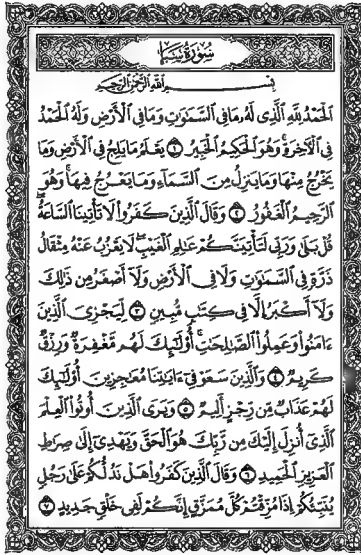 سُورَةُ سَبَإٍ
بِسْمِ اللَّهِ الرَّحْمَٰنِ الرَّحِيمِ
الْحَمْدُ لِلَّهِ الَّذِي لَهُ مَا فِي السَّمَٰوَٰتِ وَمَا فِي الْأَرْضِ وَلَهُ الْحَمْدُ
فِي الْآخِرَةِ ۚ وَهُوَ الْحَكِيمُ الْخَبِيرُ ١ يَعْلَمُ مَا يَلِجُ فِي الْأَرْضِ وَمَا
يَخْرُجُ مِنْهَا وَمَا يَنزِلُ مِنَ السَّمَاءِ وَمَا يَعْرُجُ فِيهَا ۚ وَهُوَ
الرَّحِيمُ الْغَفُورُ ٢ وَقَالَ الَّذِينَ كَفَرُوا لَا تَأْتِينَا السَّاعَةُ ۖ
قُلْ بَلَىٰ وَرَبِّي لَتَأْتِيَنَّكُمْ عَٰلِمِ الْغَيْبِ ۖ لَا يَعْزُبُ عَنْهُ مِثْقَالُ
ذَرَّةٍ فِي السَّمَٰوَٰتِ وَلَا فِي الْأَرْضِ وَلَا أَصْغَرُ مِن ذَٰلِكَ
وَلَا أَكْبَرُ إِلَّا فِي كِتَٰبٍ مُّبِينٍ ٣ لِّيَجْزِيَ الَّذِينَ
ءَامَنُوا وَعَمِلُوا الصَّٰلِحَٰتِ ۚ أُولَٰئِكَ لَهُم مَّغْفِرَةٌ وَرِزْقٌ
كَرِيمٌ ٤ وَالَّذِينَ سَعَوْ فِي ءَايَٰتِنَا مُعَٰجِزِينَ أُولَٰئِكَ
لَهُمْ عَذَابٌ مِّن رِّجْزٍ أَلِيمٌ ٥ وَيَرَى الَّذِينَ أُوتُوا الْعِلْمَ
الَّذِي أُنزِلَ إِلَيْكَ مِن رَّبِّكَ هُوَ الْحَقَّ وَيَهْدِي إِلَىٰ صِرَٰطِ
الْعَزِيزِ الْحَمِيدِ ٦ وَقَالَ الَّذِينَ كَفَرُوا هَلْ نَدُلُّكُمْ عَلَىٰ رَجُلٍ
يُنَبِّئُكُمْ إِذَا مُزِّقْتُمْ كُلَّ مُمَزَّقٍ إِنَّكُمْ لَفِي خَلْقٍ جَدِيدٍ ٧